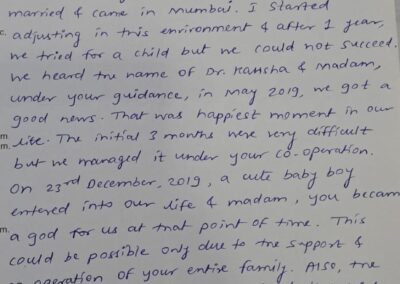 married & came in Mumbai. I started
c. adjusting in this environment & after 1 year,
we tried for a child but we could not succeed.
We heard the name of Dr. & Madam,
under your guidance, in May 2019, we got a
good news. That was happiest moment in our
m. life. The initial 3 months were very difficult
m. but we managed it under your co-operation.
On 23rd December, 2019, a cute baby boy
entered into our life & madam, you becam
m. a god for us at that point of time. This
could be possible only due to the support &
operation of your entire family. Also, the